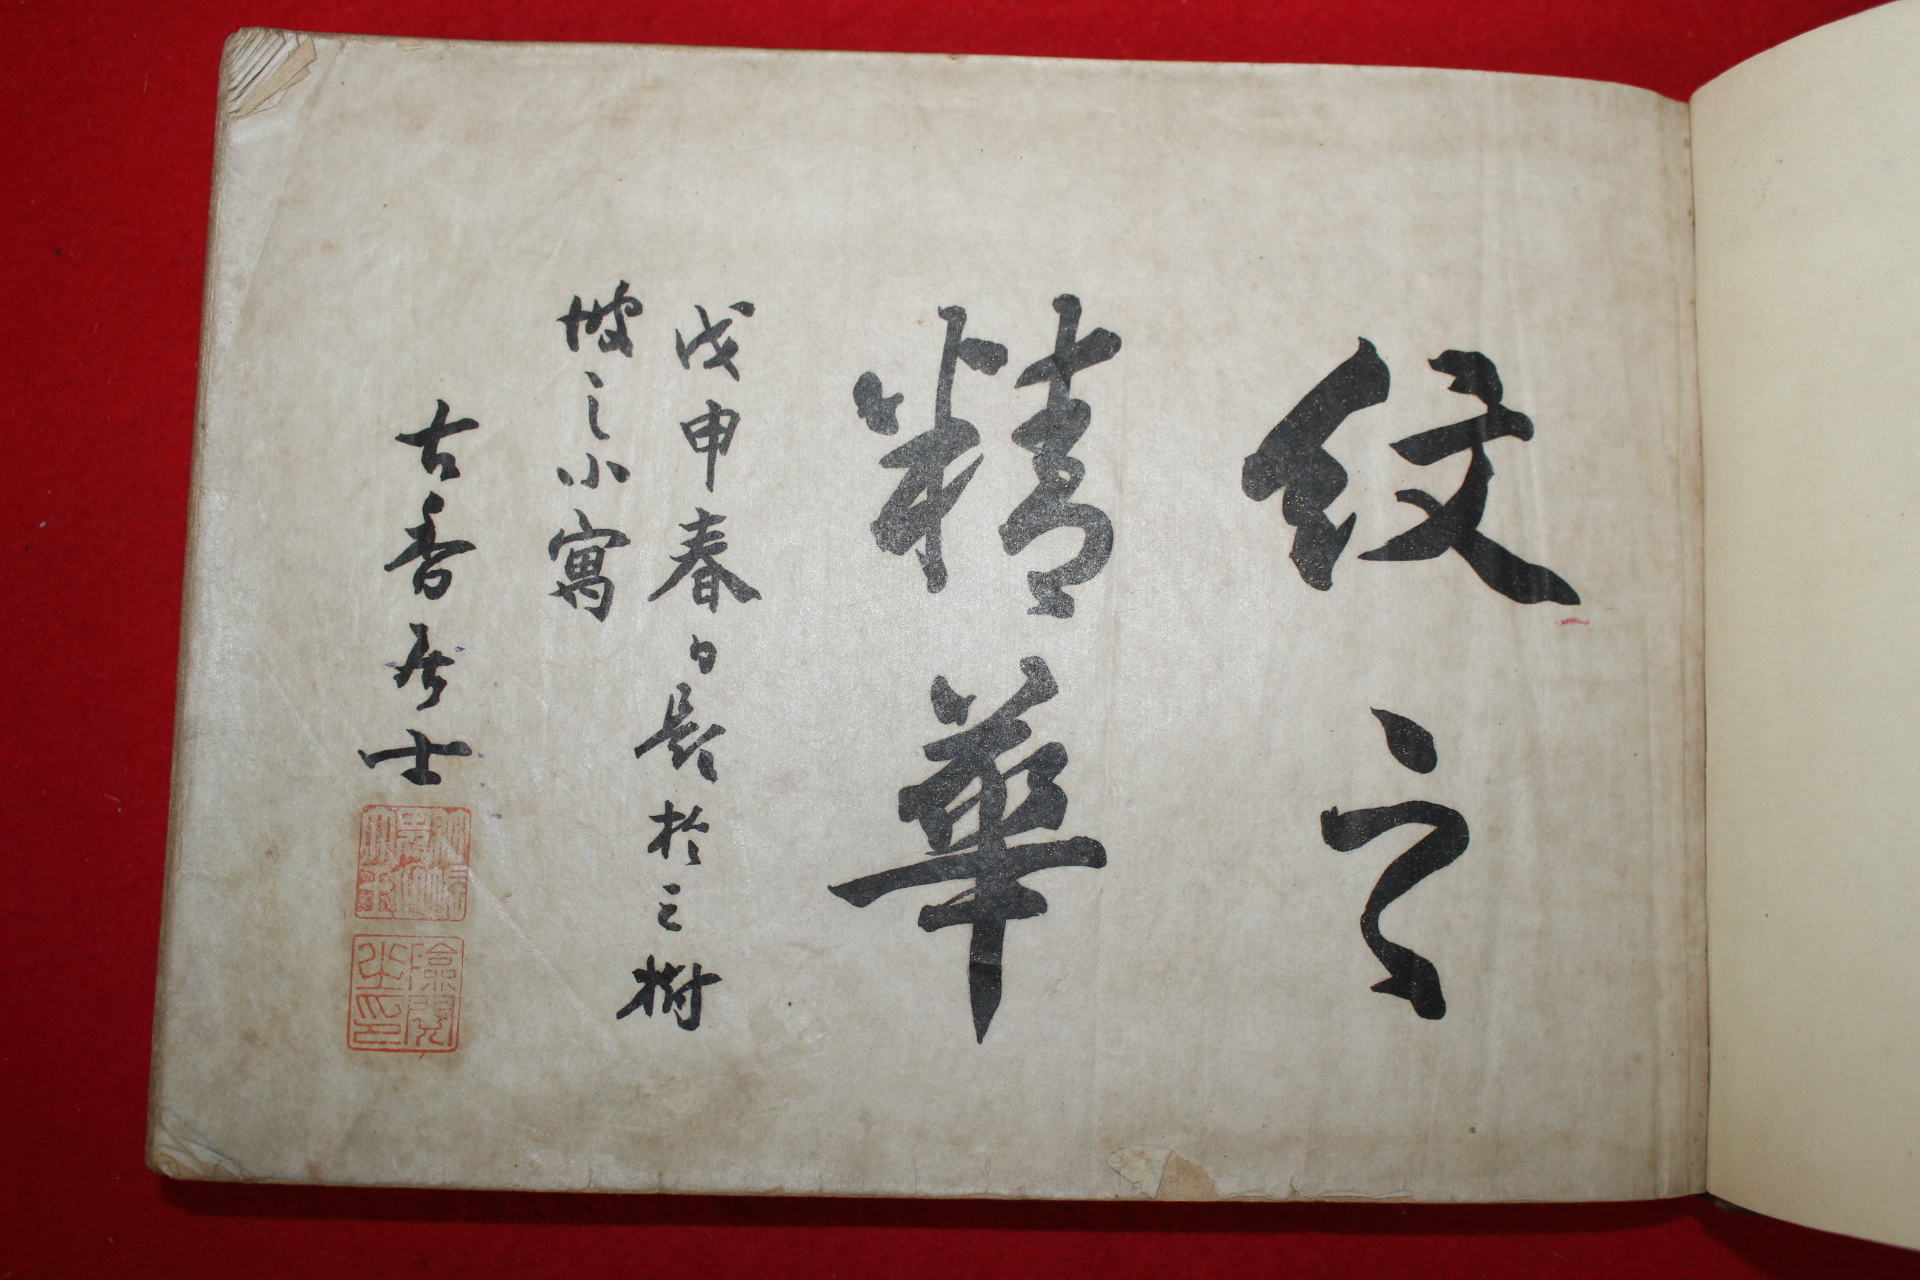 紋之
精華
戊申春日題於三樹
坡之小寓
古香居士